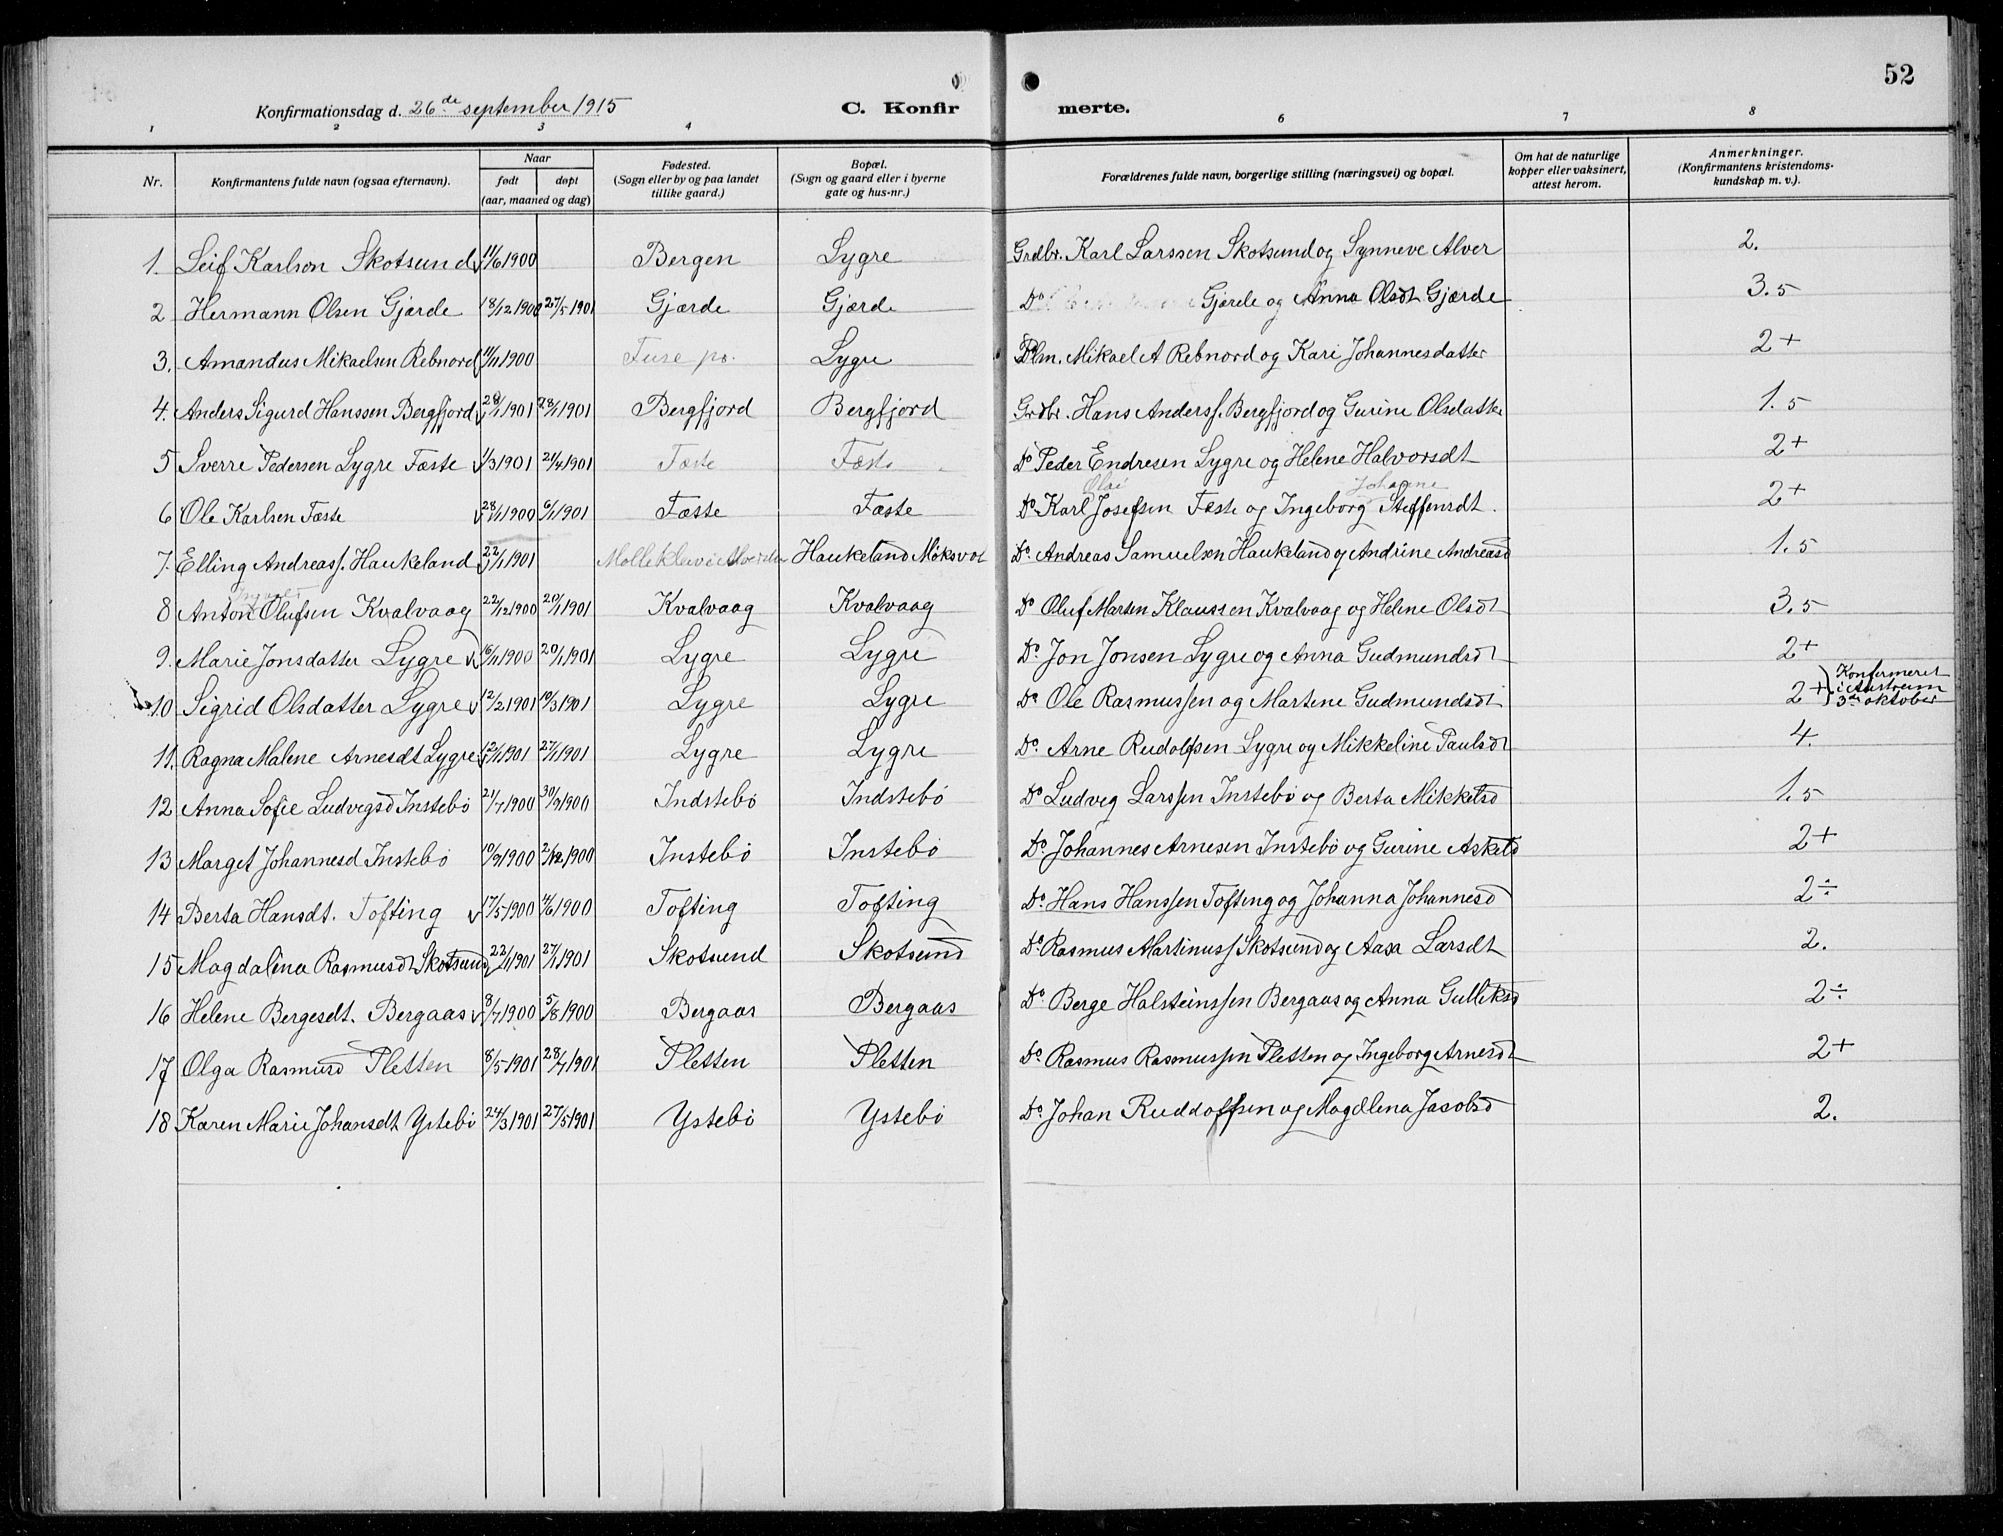 52
Konfirmationsdag d. 26de september 1915
C. Konfirmerte.
1 2 3 4 6 7 8
Nr. Konfirmantens fulde navn (ogsaa efternavn). Naar født døpt (aar, maaned og dag) Fødested. (Sogn eller by og paa landet tillike gaard.) Bopæl. (Sogn og gaard eller i byerne gate og hus-nr.) Forældrenes fulde navn, borgerlige stilling (næringsvei) og bopæl. Om hat de naturlige kopper eller vaksinert, attest herom. Anmerkninger. (Konfirmantens kristendoms-kundskap m. v.).
1. Leif Karlson Skotsund 11/6 1900 Bergen Lygre Grdbr. Karl Larssen Skotsund og Synneve Alver 2.
2 Hermann Olsen Gjærde 18/12 1900 27/5 1901 Gjærde Gjærde Do Gjærde og Anna Olsdt Gjærde 3.5
3. Amandus Mikaelsen Rebnord 11/11 1900 Fuse Lygre Mikael A Rebnord og Kari Johannesdatter 2+
4. Anders Sigurd Hanssen Bergfjord 28/1 1901 1901 Bergfjord Bergfjord Grdbr. Hans Anderss. Bergfjord og Gurine Olsdatter 1.5
5 Sverre Pedersen Lygre Fæste 1/3 1901 21/4 1901 Fæste Fæste Do Peder Endresen Lygre og Helene Halvorsdt 2+
6 Ole Karlsen Fæste 28/11 1900 6/1 1901 Fæste Fæste Do Karl Olai Josefsen Fæste og Ingeborg Johanne Steffensdt. 2+
7. Elling Andreass. Haukeland 22/1 1901 Haukeland Do. Andreas Samuelsen Haukeland og Andrine Andreasd 1.5
8 Anton Olufsen Kvalvaag 22/12 1900 20/1 1901 Kvalvaag Kvalvaag Do Oluf Marten Klaussen Kvalvaag og Helene Olsdt 3.5
9. Marie Jonsdatter Lygre 16/11 1900 20/1 1901 Lygre Lygre Do. Jon Jonsen Lygre og Anna Gudmundsdt 2+
10 Sigrid Olsdatter Lygre 12/2 1901 10/3 1901 Lygre Lygre Do Ole Rasmussen og Martine Gudmundsdt 2+ Konfirmeret i Austreim 3de oktober
11. Ragna Malene Arnesdt Lygre 12/1 1901 27/1 1901 Lygre Lygre Do. Arne Rudolfsen Lygre og Mikkeline Paulsdt 4.
12 Anna Sofie Ludvigsd Instebø 21/7 1900 30/9 1900 Indstebø Indstebø Do Ludvig Larssen Instebø og Berta Mikkelsd 1.5
13 Marget Johannesd Instebø 10/9 1900 2/12 1900 Instebø Instebø Do. Johannes Arnesen Instebø og Gurine Askeld 2+
14 Berta Hansdt. Tofting 17/5 1900 1900 Tofting Tofting Do. Hans Hanssen Tofting og Johanna Johannesd 2÷
15 Magdalina Rasmusdt Skotsund 22/1 1901 27/1 1901 Skotsund Skotsund Do. Rasmus Martinuss Skotsund og Aasa Larsdt 2.
16 Helene Bergesdt. Bergaas 8/7 1900 5/8 1900 Bergaas Bergaas Do Berge Halsteinssen Bergaas og Anna Gulliksd 2÷
17 Olga Rasmusd Pletten 8/5 1901 28/7 1901 Pletten Pletten Do. Rasmus Rasmussen Pletten og Ingeborg Arnesdt 2+
18 Karen Marie Johansdt Ystebø 24/3 1901 27/5 1901 Ystebø Ystebø Do. Johan Ruddolfsen og Magdlena Jacobsd 2.